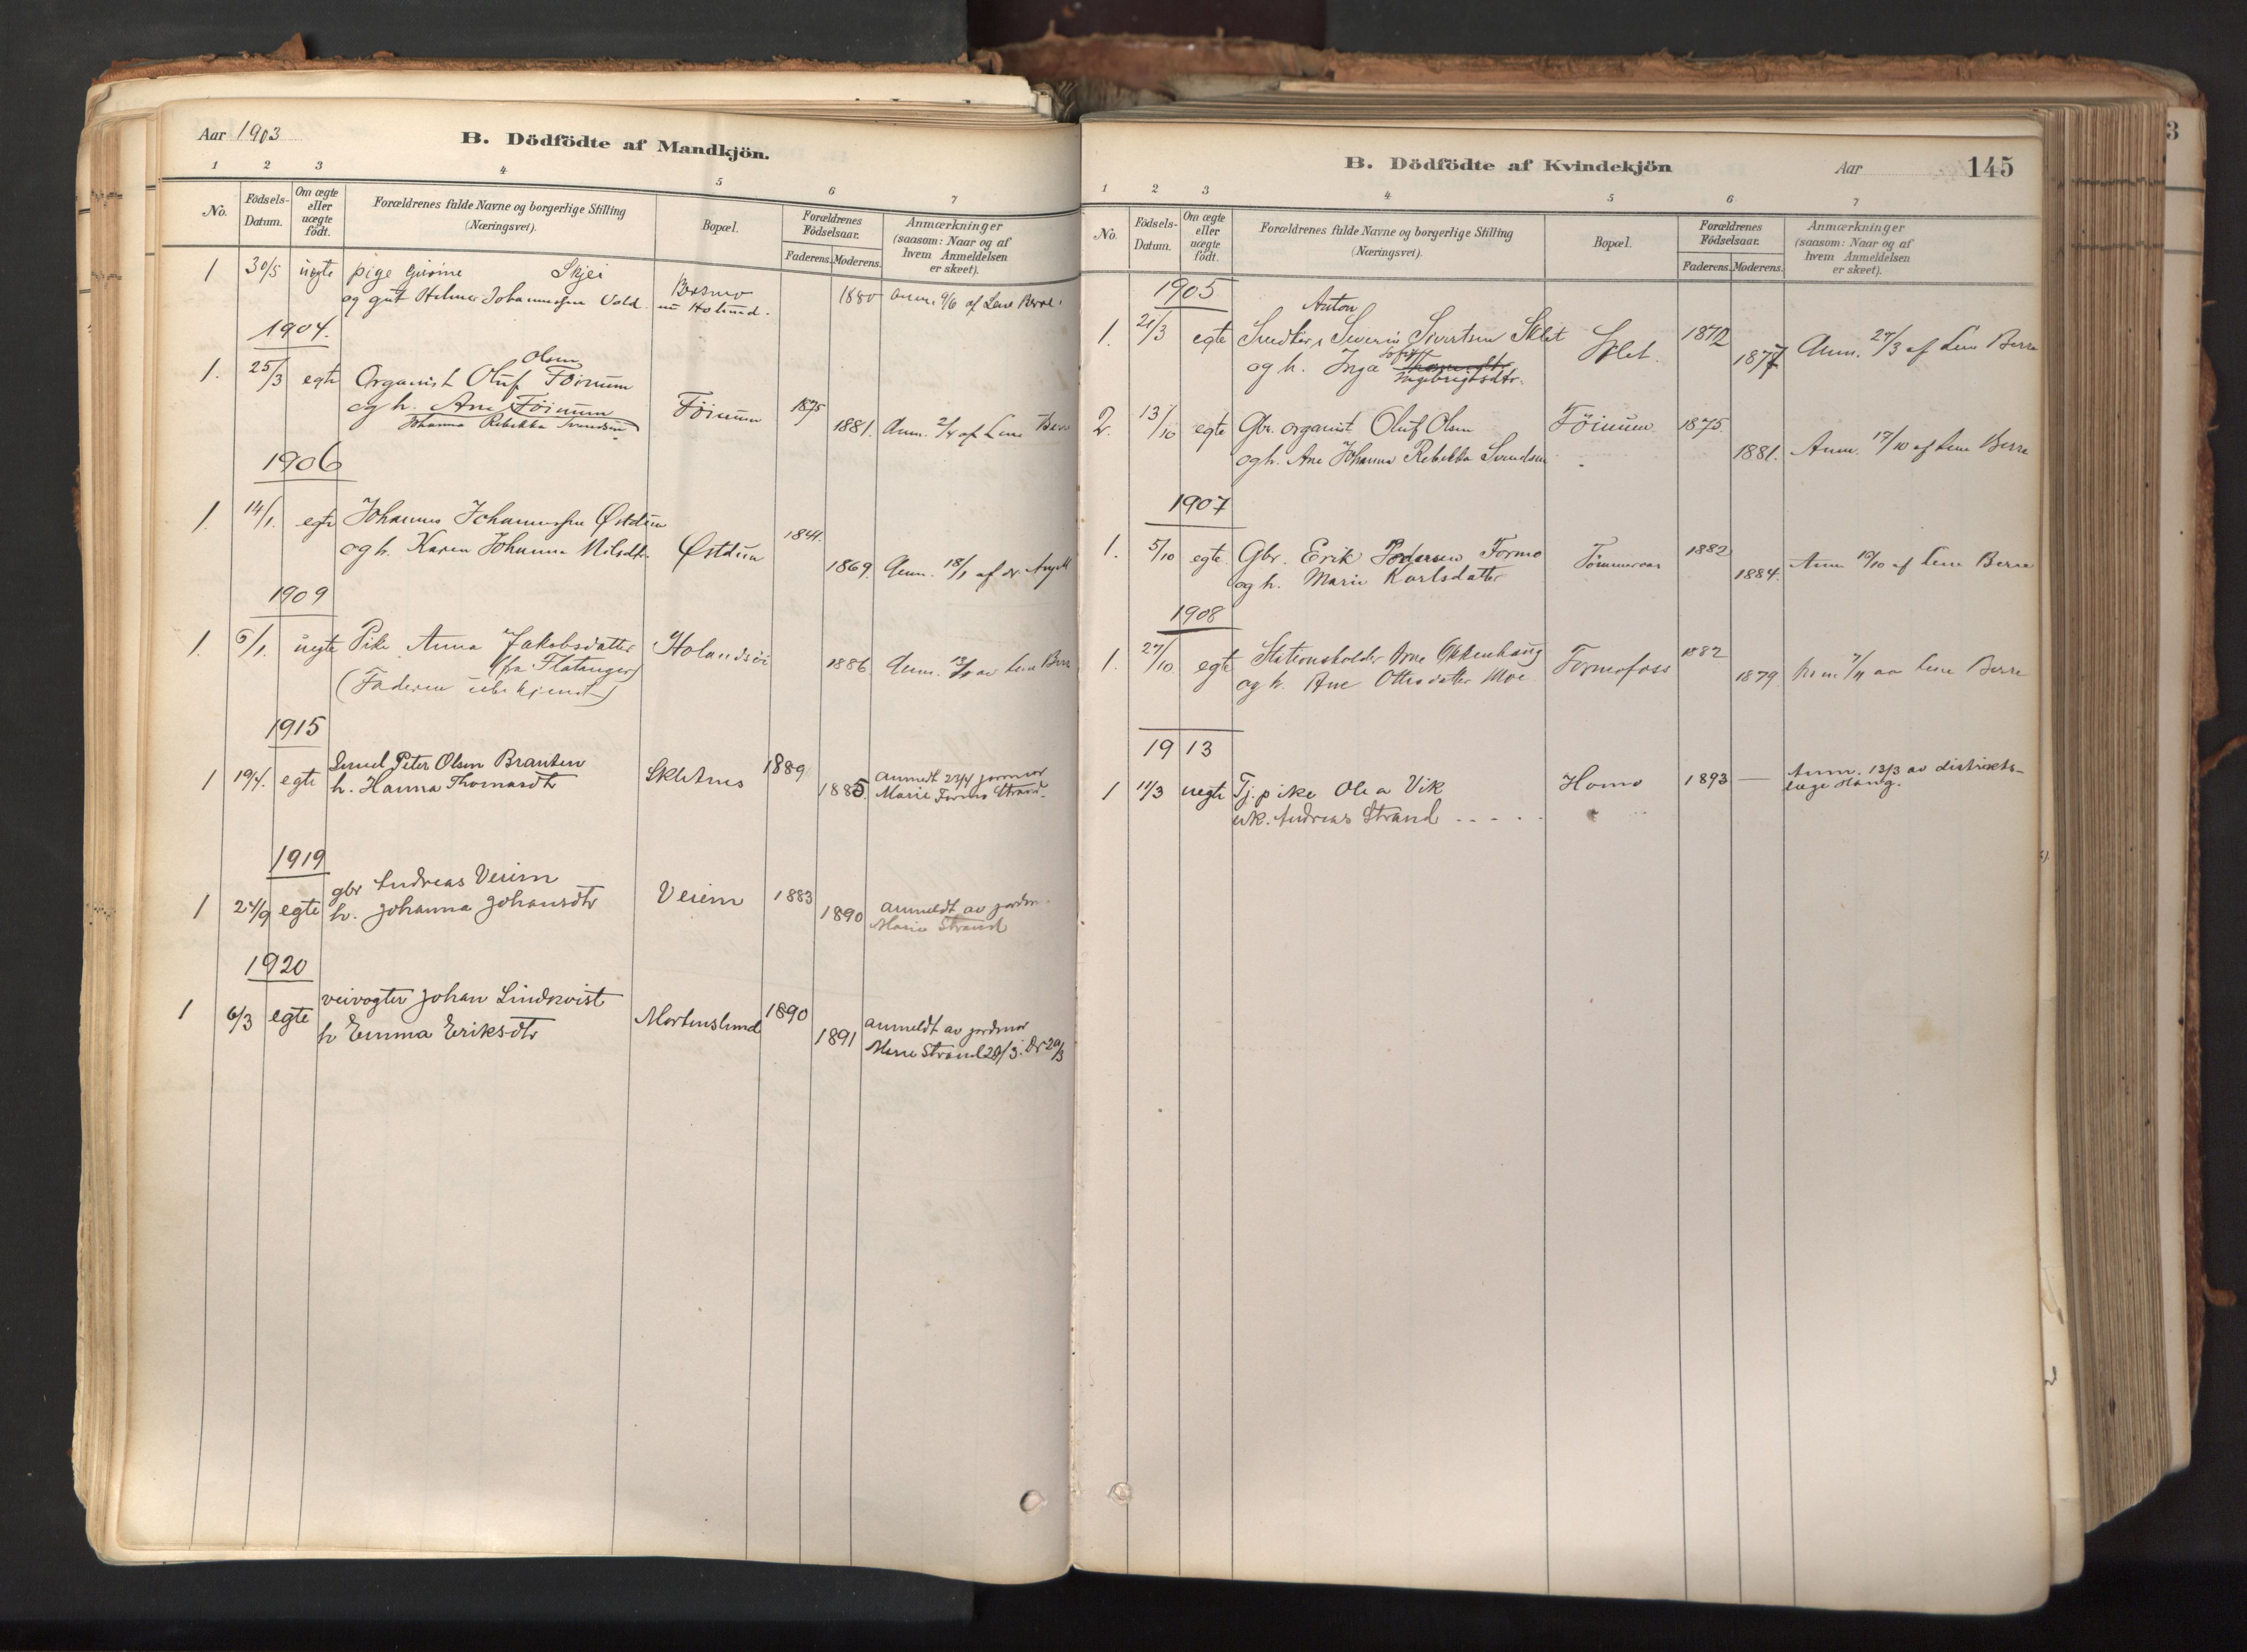 Aar 1903
B. Dödfödte af Mandkjön.
1 2 3 4 5 6 7
No.
Födsels-Datum.
Om ægte eller uægte födt.
Forældrenes fulde Navne og borgerlige Stilling
(Næringsvei).
Bopæl.
Forældrenes Födselsaar.
Faderens. Moderens.
Anmærkninger
(saasom: Naar og af
hvem Anmeldelsen
er skeet).
1 30/5 uegte pige Skjei
og gut Helmer Johannessen Vold. 1880 anm. 9/6 af Lene Berre
1904.
Olsen
1. 25/3 egte Organist Oluf Föinum
og h. Ane Föinum Föinum 1875 1881. Anm. 2/4 af Lene Berre
Johanna Rebekka Svendsen
1906
1. 14/1. egte Johannes Johannessen Østduun
og h. Karen Johanna Nilsdtr. Østduun 1844. 1869. Anm. 18/1 af dr.
1909
1. 5/1. uegte Pike Anna Jakobsdatter Holandsöi
(fra Flatanger) 1886. Anm. av Lene Berre
(Faderen ubekjendt)
1915
1 19/4. egte Peter Olsen Branten
h. Hanna Thomasdtr Skletmo 1889 1885. anmeldt 23/4 jormor
Marie Formo Strand.
1919
1 24/9 egte gbr Andreas Veiem
h. Johanna Johansdtr Veiem 1883 1890 anmeldt av jordm.
Marie Strand
1920
1 6/3 egte veivogter Johan Lindkvist
h Emma Eriksdtr Mortenslund 1890 1891 anmeldt av jordmor
Marie Strand 20/3. Dr 20/3
B. Dödfödte af Kvindekjön
Aar
145
1 2 3 4 5 6 7
No.
Födsels-Datum.
Om ægte eller uægte födt.
Forældrenes fulde Navne og borgerlige Stilling
(Næringsvei).
Bopæl.
Forældrenes Födselsaar.
Faderens. Moderens.
Anmærkninger
(saasom: Naar og af
hvem Anmeldelsen
er skeet).
1905
Anton
1. 21/3 egte Snedker Severin Sivertsen Sklet
og h. Inga Sofie Ingebrigtsdtr. Sklet. 1872 1877 Anm. 27/3 af Lene Berre
2. 13/10 egte Gbr. organist Oluf Olsen Föinum 1875.
og h. Ane Johanna Rebekka Svendsen 1881. Anm. 17/10 af Lene Berre
1907
1. 5/10 egte. Gbr. Erik Pedersen Formo
og h. Marie Karlsdatter Tömmeraas 1882 1884. Anm 19/10 af Lene Berre
1908
1. 27/10. egte Stationsholder Arne Okkenhaug
og h. Ane Ottesdatter Moe Formofoss 1882 1879. Anm 7/11 av Lene Berre
1913
1 11/3 uegte Tj.pike Olea Vik Homo 1893 — Anm. 13/3 av distrikts-
læge Haug.
uk. Andreas Strand